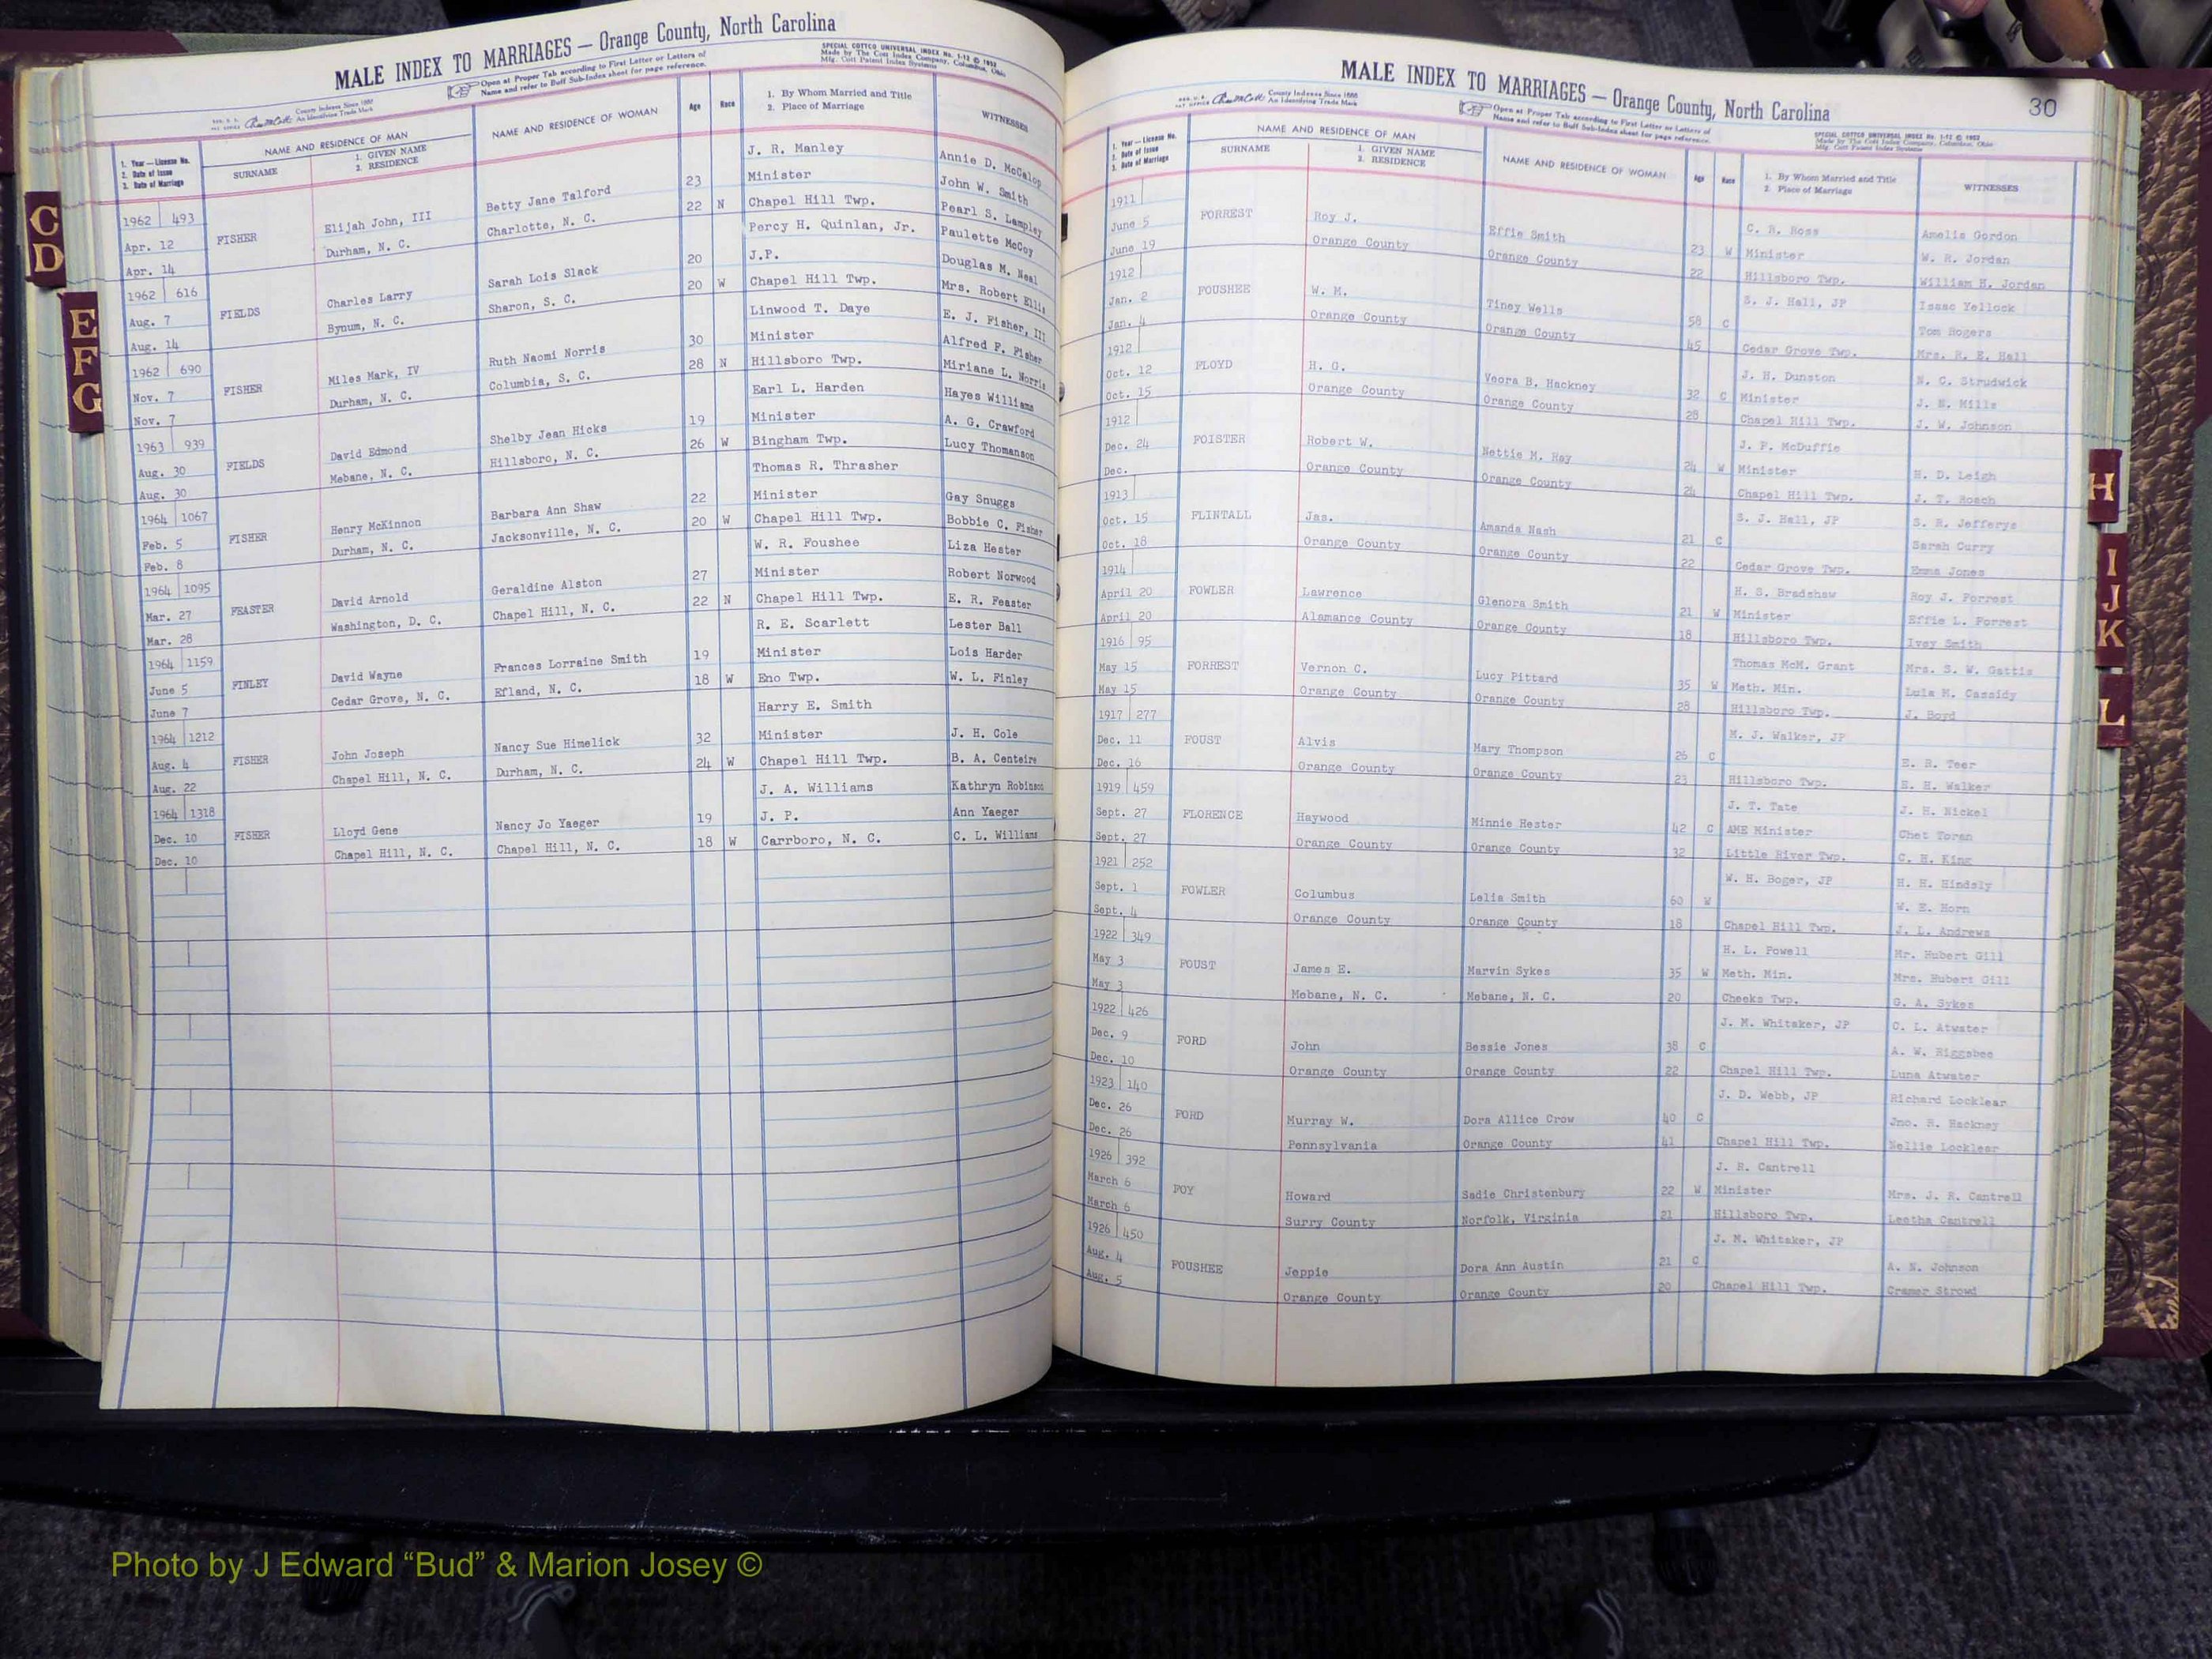 MALE INDEX TO MARRIAGES — Orange County, North Carolina
Open at Proper Tab according to First Letter or Letters of
Name and refer to Buff Sub-Index sheet for page reference.
SPECIAL COTTCO UNIVERSAL INDEX No. 1-12 © 1952
Made by The Cott Index Company, Columbus, Ohio
Mfg. Cott Patent Index Systems
County Indexes Since 1888
An Identifying Trade Mark
1. Year — License No.
2. Date of Issue
3. Date of Marriage
NAME AND RESIDENCE OF MAN
SURNAME
1. GIVEN NAME
2. RESIDENCE
NAME AND RESIDENCE OF WOMAN
Age
Race
1. By Whom Married and Title
2. Place of Marriage
WITNESSES
J. R. Manley Annie D. McCalop
1962 493 FISHER Elijah John, III Betty Jane Talford 23 Minister John W. Smith
Apr. 12 Durham, N. C. Charlotte, N. C. 22 N Chapel Hill Twp. Pearl S. Lampley
Apr. 14 Percy H. Quinlan, Jr. Paulette McCoy
1962 616 FIELDS Charles Larry Sarah Lois Slack 20 J.P. Douglas M. Neal
Aug. 7 Bynum, N. C. Sharon, S. C. 20 W Chapel Hill Twp. Mrs. Robert Ellis
Aug. 14 Linwood T. Daye E. J. Fisher, III
1962 690 FISHER Miles Mark, IV Ruth Naomi Norris 30 Minister Alfred P. Fisher
Nov. 7 Durham, N. C. Columbia, S. C. 28 N Hillsboro Twp. Miriane L. Norris
Nov. 7 Earl L. Harden Hayes Williams
1963 939 FIELDS David Edmond Shelby Jean Hicks 19 Minister A. G. Crawford
Aug. 30 Mebane, N. C. Hillsboro, N. C. 26 W Bingham Twp. Lucy Thomanson
Aug. 30 Thomas R. Thrasher
1964 1067 FISHER Henry McKinnon Barbara Ann Shaw 22 Minister Gay Snuggs
Feb. 5 Durham, N. C. Jacksonville, N. C. 20 W Chapel Hill Twp. Bobbie C. Fisher
Feb. 8 W. R. Foushee Liza Hester
1964 1095 FEASTER David Arnold Geraldine Alston 27 Minister Robert Norwood
Mar. 27 Washington, D. C. Chapel Hill, N. C. 22 N Chapel Hill Twp. E. R. Feaster
Mar. 28 R. E. Scarlett Lester Ball
1964 1159 FINLEY David Wayne Frances Lorraine Smith 19 Minister Lois Harder
June 5 Cedar Grove, N. C. Efland, N. C. 18 W Eno Twp. W. L. Finley
June 7 Harry E. Smith
1964 1212 FISHER John Joseph Nancy Sue Himelick 32 Minister J. H. Cole
Aug. 4 Chapel Hill, N. C. Durham, N. C. 24 W Chapel Hill Twp. B. A. Centeire
Aug. 22 J. A. Williams Kathryn Robinson
1964 1318 FISHER Lloyd Gene Nancy Jo Yaeger 19 J. P. Ann Yaeger
Dec. 10 Chapel Hill, N. C. Chapel Hill, N. C. 18 W Carrboro, N. C. C. L. Williams
Dec. 10
C
D
E
F
G
MALE INDEX TO MARRIAGES — Orange County, North Carolina
30
County Indexes Since 1888
An Identifying Trade Mark
Open at Proper Tab according to First Letter or Letters of
Name and refer to Buff Sub-Index sheet for page reference.
SPECIAL COTTCO UNIVERSAL INDEX No. 1-12 © 1952
Made by The Cott Index Company, Columbus, Ohio
Mfg. Cott Patent Index Systems
1. Year — License No.
2. Date of Issue
3. Date of Marriage
NAME AND RESIDENCE OF MAN
SURNAME
1. GIVEN NAME
2. RESIDENCE
NAME AND RESIDENCE OF WOMAN
Age
Race
1. By Whom Married and Title
2. Place of Marriage
WITNESSES
1911 C. R. Ross Amelia Gordon
June 5 FORREST Roy J. Effie Smith 23 W Minister W. R. Jordan
June 19 Orange County Orange County 22 Hillsboro Twp. William H. Jordan
1912 S. J. Hall, JP Isaac Yellock
Jan. 2 FOUSHEE W. M. Tiney Wells 58 C Tom Rogers
Jan. 4 Orange County Orange County 45 Cedar Grove Twp. Mrs. R. E. Hall
1912 J. H. Dunston N. C. Strudwick
Oct. 12 FLOYD H. G. Veora B. Hackney 32 C Minister J. N. Mills
Oct. 15 Orange County Orange County 28 Chapel Hill Twp. J. W. Johnson
1912 J. P. McDuffie
Dec. 24 FOISTER Robert W. Nettie M. Ray 24 W Minister H. D. Leigh
Dec. Orange County Orange County 24 Chapel Hill Twp. J. T. Roach
1913 S. J. Hall, JP S. R. Jefferys
Oct. 15 FLINTALL Jas. Amanda Nash 21 C Sarah Curry
Oct. 18 Orange County Orange County 22 Cedar Grove Twp. Emma Jones
1914 H. S. Bradshaw Roy J. Forrest
April 20 FOWLER Lawrence Glenora Smith 21 W Minister Effie L. Forrest
April 20 Alamance County Orange County 18 Hillsboro Twp. Ivey Smith
1916 95 Thomas McM. Grant Mrs. S. W. Gattis
May 15 FORREST Vernon C. Lucy Pittard 35 W Meth. Min. Lula M. Cassidy
May 15 Orange County Orange County 28 Hillsboro Twp. J. Boyd
1917 277 M. J. Walker, JP
Dec. 11 FOUST Alvis Mary Thompson 26 C E. R. Teer
Dec. 16 Orange County Orange County 23 Hillsboro Twp. E. H. Walker
1919 459 J. T. Tate J. H. Nickel
Sept. 27 FLORENCE Haywood Minnie Hester 42 C AME Minister Chet Toran
Sept. 27 Orange County Orange County 32 Little River Twp. C. H. King
1921 252 W. H. Boger, JP H. H. Hindsly
Sept. 1 FOWLER Columbus Lelia Smith 60 W W. E. Horn
Sept. 4 Orange County Orange County 18 Chapel Hill Twp. J. L. Andrews
1922 349 H. L. Powell Mr. Hubert Gill
May 3 FOUST James E. Marvin Sykes 35 W Meth. Min. Mrs. Hubert Gill
May 3 Mebane, N. C. Mebane, N. C. 20 Cheeks Twp. G. A. Sykes
1922 426 J. M. Whitaker, JP C. L. Atwater
Dec. 9 FORD John Bessie Jones 38 C A. W. Riggsbee
Dec. 10 Orange County Orange County 22 Chapel Hill Twp. Luna Atwater
1923 140 J. D. Webb, JP Richard Locklear
Dec. 26 FORD Murray W. Dora Allice Crow 40 C Jno. R. Hackney
Dec. 26 Pennsylvania Orange County 41 Chapel Hill Twp. Nellie Locklear
1926 392 J. R. Cantrell
March 6 FOY Howard Sadie Christenbury 22 W Minister Mrs. J. R. Cantrell
March 6 Surry County Norfolk, Virginia 21 Hillsboro Twp. Leatha Cantrell
1926 450 J. M. Whitaker, JP
Aug. 4 FOUSHEE Jeppie Dora Ann Austin 21 C A. N. Johnson
Aug. 5 Orange County Orange County 20 Chapel Hill Twp. Cramer Strowd
H
I
J
K
L
Photo by J Edward “Bud” & Marion Josey ©